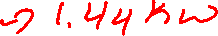 1.44 KW